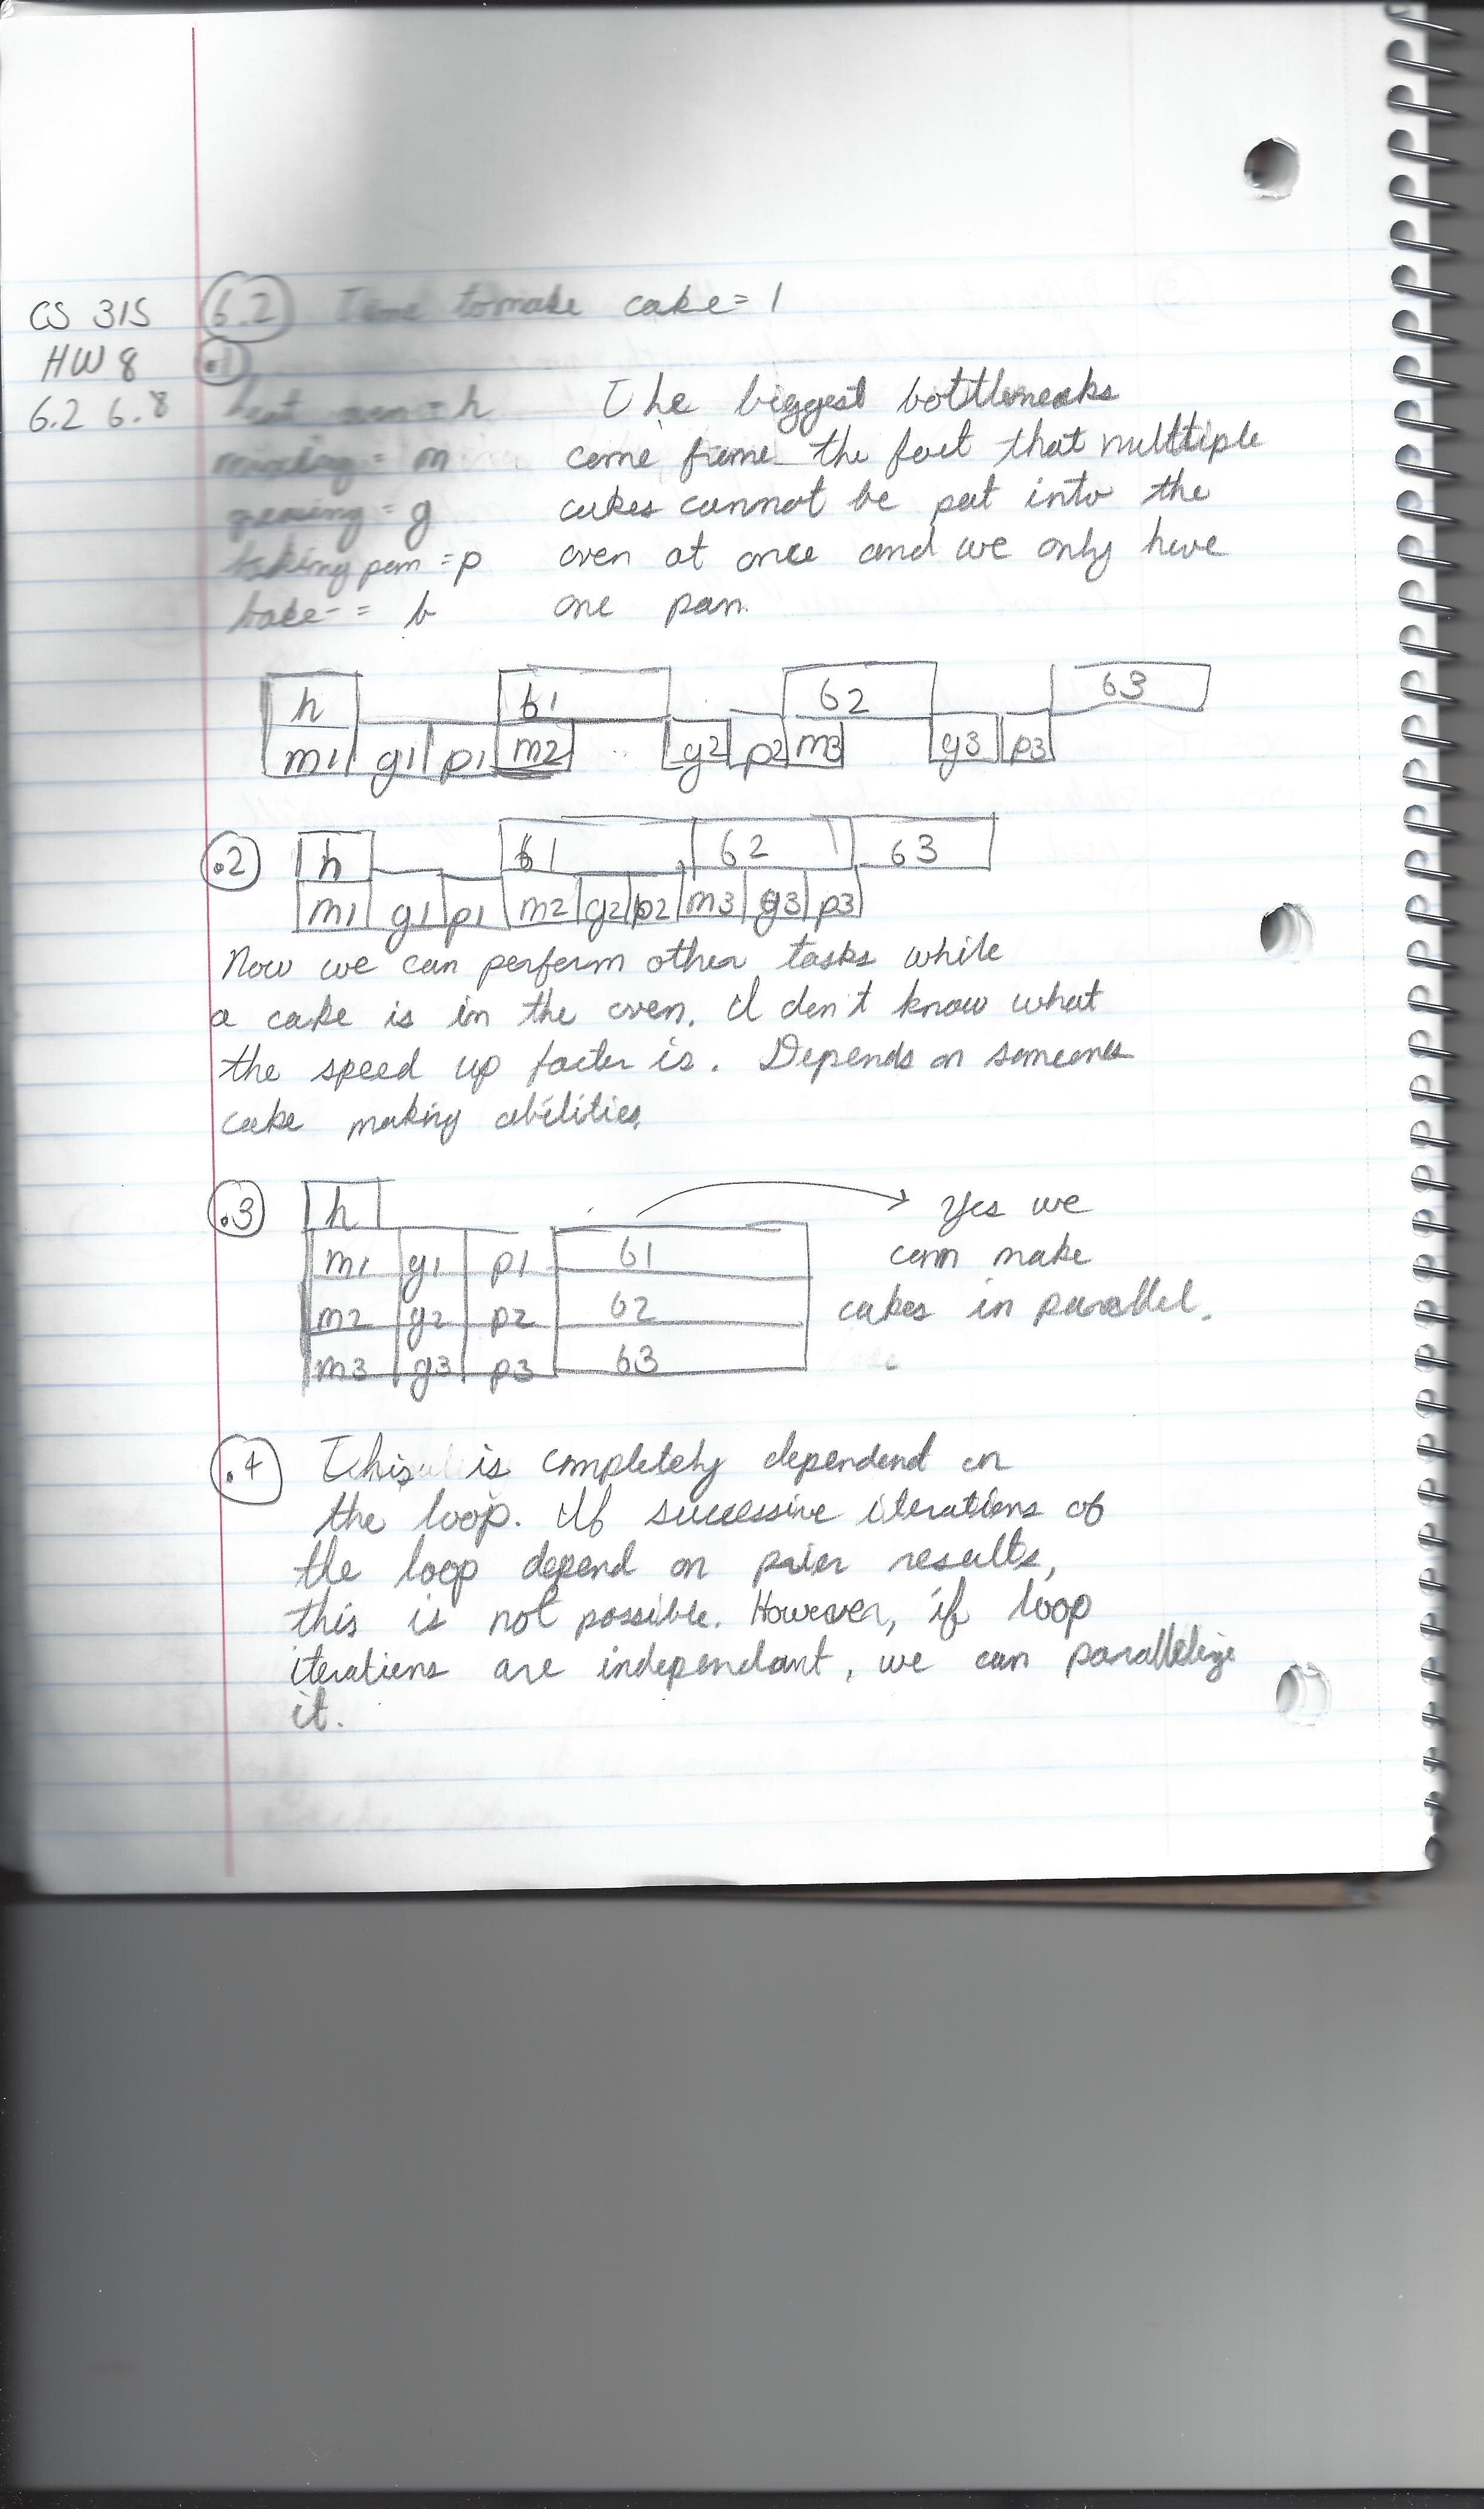 CS 315
HW 8
6.2 6.8
6.2 Time to make cake = 1
.1
heat = h
mixing = m
greasing = g
baking pan = p
bake = b
The biggest bottlenecks
come frome the fact that multtiple
cakes cannot be put into the
oven at once and we only have
one pan.
h b1 b2 b3
m1 g1 p1 m2 g2 p2 m3 g3 p3
.2
h b1 b2 b3
m1 g1 p1 m2 g2 p2 m3 g3 p3
Now we can perform other tasks while
a cake is in the oven. I don't know what
the speed up factor is. Depends on someones
cake making abilities.
.3
h
m1 g1 p1 b1
m2 g2 p2 b2
m3 g3 p3 b3
Yes we
can make
cakes in parallel.
.4 This is completely dependend on
the loop. If successive iterations of
the loop depend on prier results,
this is not possible. However, if loop
iterations are independant, we can parallelize
it.